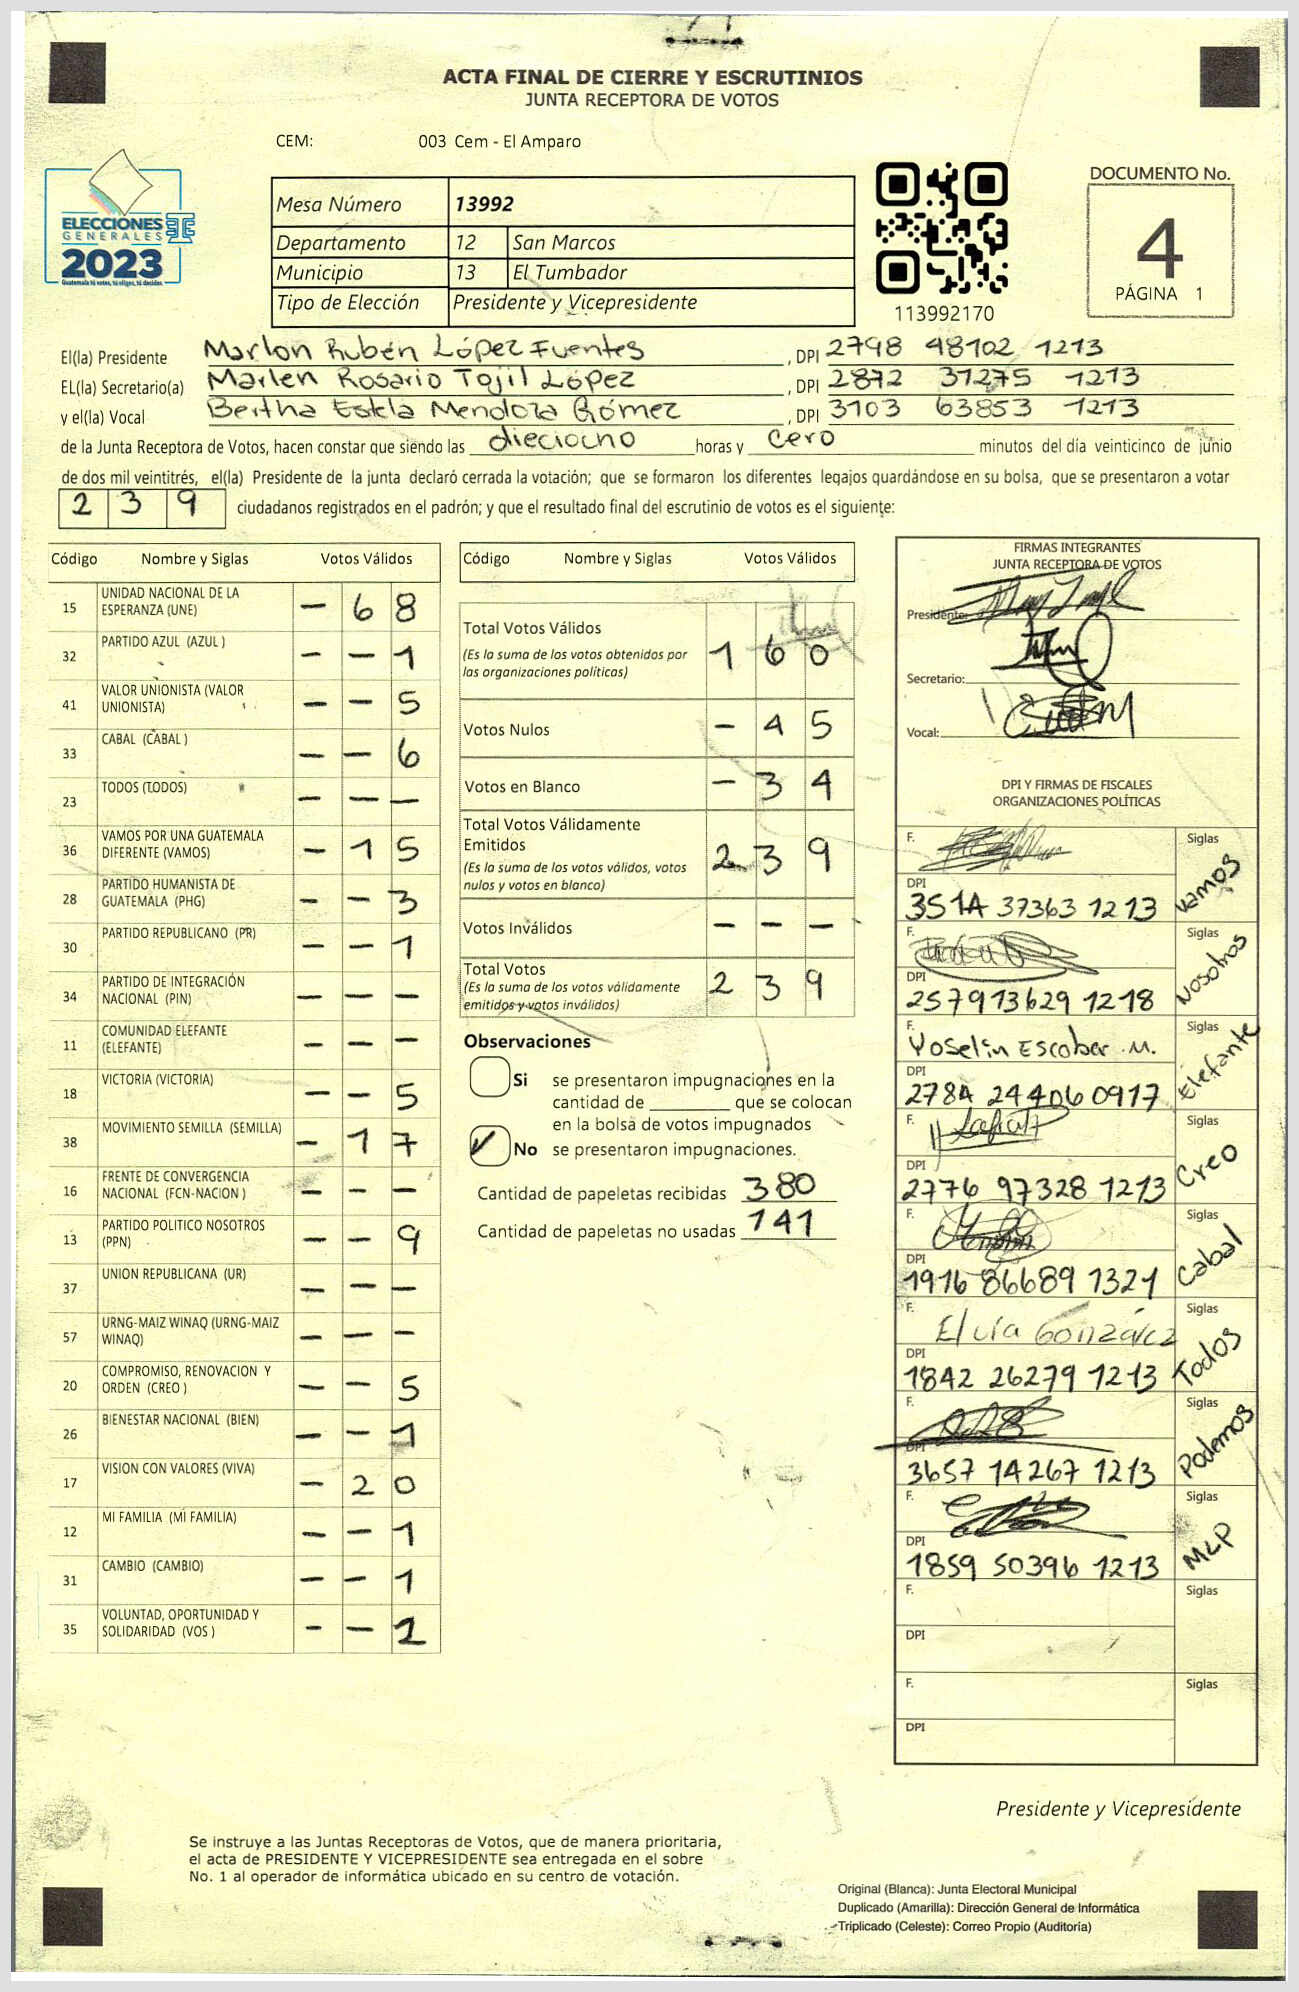 ACTA FINAL DE CIERRE Y ESCRUTINIOS
JUNTA RECEPTORA DE VOTOS
CEM: 003 Cem - El Amparo
ELECCIONES
GENERALES
2023
Guatemala tú votas, tú eliges, tú decides
Mesa Número 13992
Departamento 12 San Marcos
Municipio 13 El Tumbador
Tipo de Elección Presidente y Vicepresidente
113992170
DOCUMENTO No.
4
PÁGINA 1
El(la) Presidente Marlon Rubén López Fuentes , DPI 2798 48102 1213
EL(la) Secretario(a) Marlen Rosario Tojil López , DPI 2872 31275 1213
y el(la) Vocal Bertha Estela Mendoza Gómez , DPI 3103 63853 1213
de la Junta Receptora de Votos, hacen constar que siendo las dieciocho horas y cero minutos del día veinticinco de junio
de dos mil veintitrés, el(la) Presidente de la junta declaró cerrada la votación; que se formaron los diferentes legajos guardándose en su bolsa, que se presentaron a votar
2 3 9 ciudadanos registrados en el padrón; y que el resultado final del escrutinio de votos es el siguiente:
Código Nombre y Siglas Votos Válidos
15 UNIDAD NACIONAL DE LA ESPERANZA (UNE) - 6 8
32 PARTIDO AZUL (AZUL ) - - 1
41 VALOR UNIONISTA (VALOR UNIONISTA) - - 5
33 CABAL (CABAL ) - - 6
23 TODOS (TODOS) - - -
36 VAMOS POR UNA GUATEMALA DIFERENTE (VAMOS) - 1 5
28 PARTIDO HUMANISTA DE GUATEMALA (PHG) - - 3
30 PARTIDO REPUBLICANO (PR) - - 1
34 PARTIDO DE INTEGRACIÓN NACIONAL (PIN) - - -
11 COMUNIDAD ELEFANTE (ELEFANTE) - - -
18 VICTORIA (VICTORIA) - - 5
38 MOVIMIENTO SEMILLA (SEMILLA) - 1 7
16 FRENTE DE CONVERGENCIA NACIONAL (FCN-NACION ) - - -
13 PARTIDO POLITICO NOSOTROS (PPN) - - 9
37 UNION REPUBLICANA (UR) - - -
57 URNG-MAIZ WINAQ (URNG-MAIZ WINAQ) - - -
20 COMPROMISO, RENOVACION Y ORDEN (CREO ) - - 5
26 BIENESTAR NACIONAL (BIEN) - - 1
17 VISION CON VALORES (VIVA) - 2 0
12 MI FAMILIA (MI FAMILIA) - - 1
31 CAMBIO (CAMBIO) - - 1
35 VOLUNTAD, OPORTUNIDAD Y SOLIDARIDAD (VOS ) - -
Código Nombre y Siglas Votos Válidos
Total Votos Válidos 1 6 0
(Es la suma de los votos obtenidos por
las organizaciones políticas)
Votos Nulos - 4 5
Votos en Blanco - 3 4
Total Votos Válidamente
Emitidos 2 3 9
(Es la suma de los votos válidos, votos
nulos y votos en blanco)
Votos Inválidos - - -
Total Votos 2 3 9
(Es la suma de los votos válidamente
emitidos y votos inválidos)
Observaciones
Si se presentaron impugnaciones en la
cantidad de ________ que se colocan
en la bolsa de votos impugnados
✓ No se presentaron impugnaciones.
Cantidad de papeletas recibidas 380
Cantidad de papeletas no usadas 141
FIRMAS INTEGRANTES
JUNTA RECEPTORA DE VOTOS
Presidente:
Secretario:
Vocal:
DPI Y FIRMAS DE FISCALES
ORGANIZACIONES POLÍTICAS
F. Siglas Vamos
DPI 3514 37363 1213
F. Siglas Nosotros
DPI 2579 13629 1218
F. Yoselin Escobar M. Siglas Elefante
DPI 2784 24406 0917
F. Siglas Creo
DPI 2776 97328 1213
F. Siglas Cabal
DPI 1916 86689 1321
F. Elvia González Siglas Todos
DPI 1842 26279 1213
F. Siglas Podemos
DPI 3657 14267 1213
F. Siglas MLP
DPI 1859 50396 1213
F. Siglas
DPI
F. Siglas
DPI
Presidente y Vicepresidente
Se instruye a las Juntas Receptoras de Votos, que de manera prioritaria,
el acta de PRESIDENTE Y VICEPRESIDENTE sea entregada en el sobre
No. 1 al operador de informática ubicado en su centro de votación.
Original (Blanca): Junta Electoral Municipal
Duplicado (Amarilla): Dirección General de Informática
Triplicado (Celeste): Correo Propio (Auditoría)